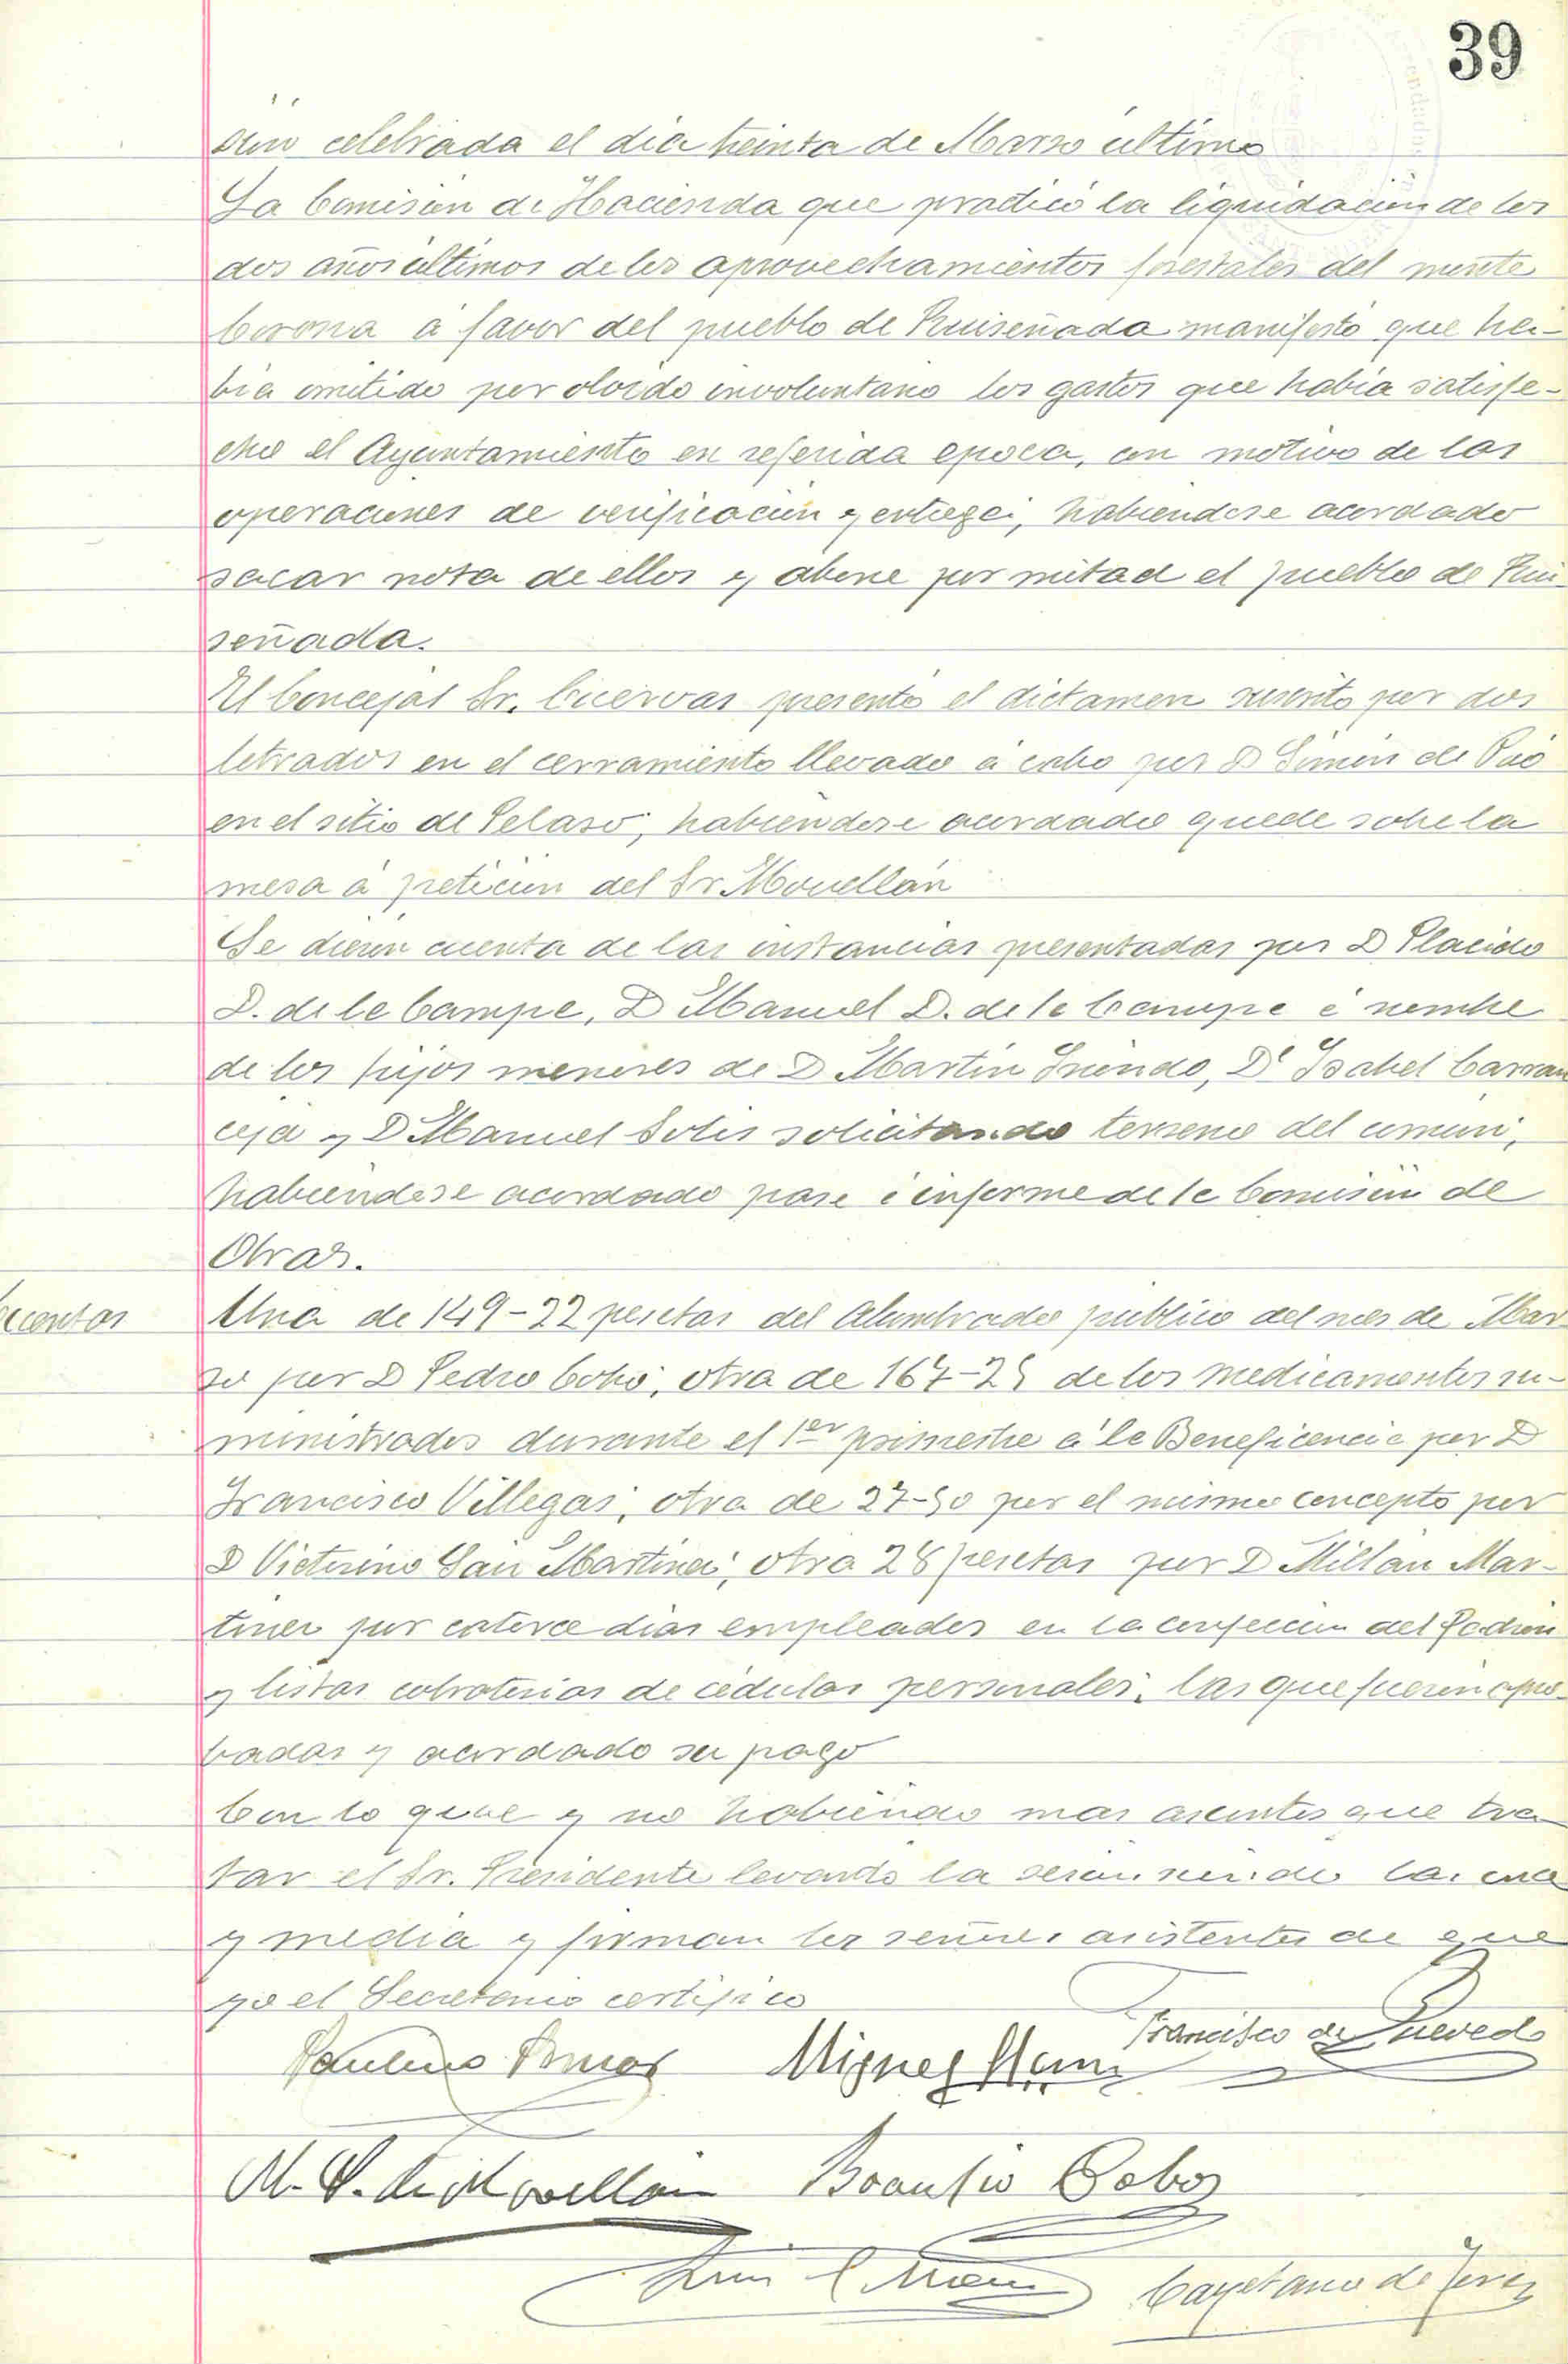 39
sión celebrada el dia treinta de Marzo último
La Comisión de Hacienda que practicó la liquidación de los
dos años últimos de los aprovechamientos forestales del monte
Corona á favor del pueblo de Ruiseñada manifestó que ha-
bia omitido por olvido involuntario los gastos que habia satisfe-
cho el Ayuntamiento en referida epoca, con motivo de las
operaciones de verificación y entrega, habiendose acordado
sacar nota de ellos y abone por mitad el pueblo de Rui-
señada.
El Concejal Sr. Cuervas presentó el dictamen suscrito por dos
letrados en el cerramiento llevado á cabo por D Simón de Pió
en el sitio de Pelaso; habiendose acordado quede sobre la
mesa á petición del Sr Movellán
Se dieron cuenta de las instancias presentadas por D Placido
D. de la Campa, D Manuel D. de la Campa á nombre
de los hijos menores de D Martín Oriondo, Dª Isabel Carran
ceja y D Manuel Solis solicitando terreno del común,
habiendose acordado pase á informe de la Comisión de
Obras.
Cuentas
Una de 149-22 pesetas del Alumbrado público del mes de Mar-
zo por D Pedro Cobo; otra de 167-25 de los medicamentos su-
ministrados durante el 1er primestre á la Beneficencia por D
Francisco Villegas; otra de 27-50 por el mismo concepto por
D Victorino San Martina; otra 28 pesetas por D Millan Mar-
tinez por catorce dias empleados en la confección del Padron
y listas cobratorias de cédulas personales; las que fueron apro-
badas y acordado su pago
Con lo que y no habiendo mas asuntos que tra-
tar el Sr. Presidente levantó la sesión siendo las once
y media y firman los señores asistentes de que
yo el Secretario certifico
Francisco de Quevedo
Paulino Miguel
M. S. de Movellán Braulio Cobos
Luis Cayetano de